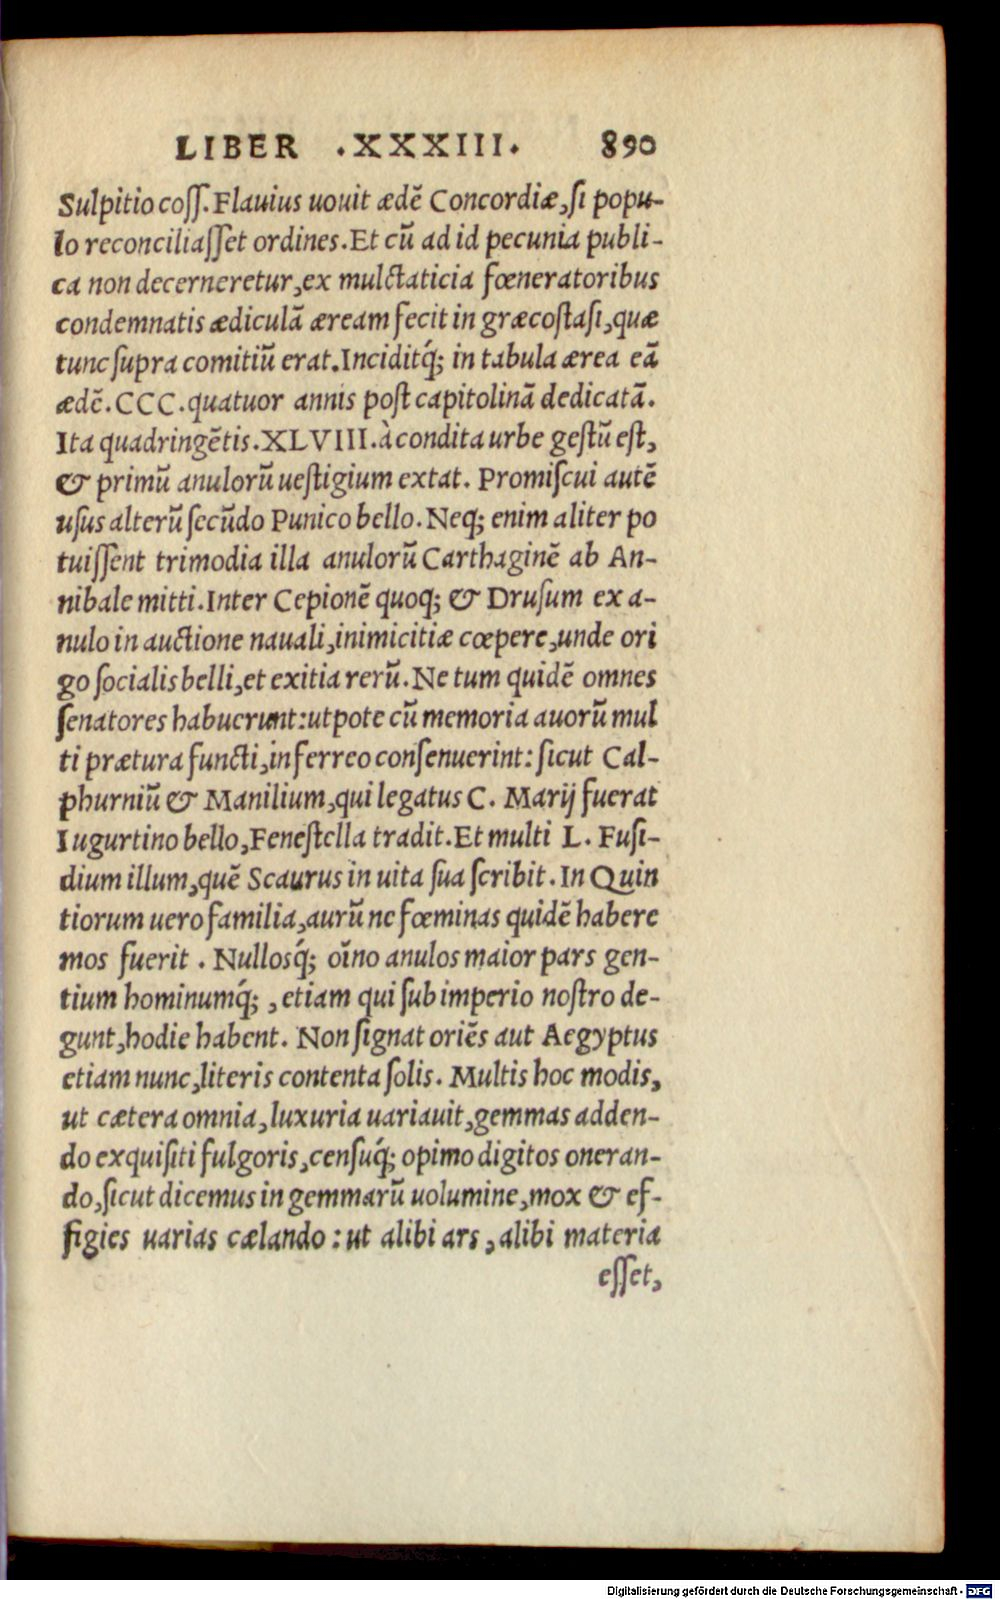 LIBER .XXXIII. 890
Sulpitio coſſ. Flauius uouit ædē Concordiæ, ſi popu-
lo reconciliaſſet ordines. Et cū ad id pecunia publi-
ca non decerneretur, ex mulctaticia fœneratoribus
condemnatis ædiculā æream fecit in græcoſtaſi, quæ
tunc ſupra comitiū erat. Inciditq́; in tabula ærea eā
ædē. CCC. quatuor annis poſt capitolinā dedicatā.
Ita quadringētis. XLVIII. à condita urbe geſtū eſt,
& primū anulorū ueſtigium extat. Promiſcui autē
uſus alterū ſecūdo Punico bello. Neq; enim aliter po
tuiſſent trimodia illa anulorū Carthaginē ab An-
nibale mitti. Inter Cepionē quoq; & Druſum ex a-
nulo in auctione nauali, inimicitiæ cœpere, unde ori
go ſocialis belli, et exitia rerū. Ne tum quidē omnes
ſenatores habuerunt: utpote cū memoria auorū mul
ti prætura functi, in ferreo conſenuerint: ſicut Cal-
phurniū & Manilium, qui legatus C. Marij fuerat
Iugurtino bello, Feneſtella tradit. Et multi L. Fuſi-
dium illum, quē Scaurus in uita ſua ſcribit. In Quin
tiorum uero familia, aurū ne fœminas quidē habere
mos fuerit . Nullosq́; oīno anulos maior pars gen-
tium hominumq́; , etiam qui ſub imperio noſtro de-
gunt, hodie habent. Non ſignat oriēs aut Aegyptus
etiam nunc, literis contenta ſolis. Multis hoc modis,
ut cætera omnia, luxuria uariauit, gemmas adden-
do exquiſiti fulgoris, cenſuq́; opimo digitos oneran-
do, ſicut dicemus in gemmarū uolumine, mox & ef-
figies uarias cælando : ut alibi ars , alibi materia
eſſet,
Digitalisierung gefördert durch die Deutsche Forschungsgemeinschaft - DFG